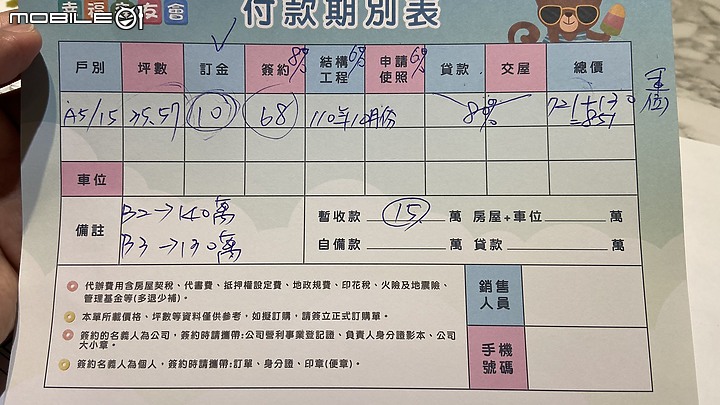 MOBILE01
幸福 友會
付款期別表
戶別 坪數 訂金 簽約 8% 結構工程 6% 申請使照 6% 貸款 交屋 總價
A5/15 35.57 10 68 110年10月份 80% 721+130 車位
=851
車位
備註 B2→140萬
B3→130萬
暫收款 15 萬 房屋+車位 萬
自備款 萬 貸款 萬
代辦費用含房屋契稅、代書費、抵押權設定費、地政規費、印花稅、火險及地震險、
管理基金等(多退少補)。
本單所載價格、坪數等資料僅供參考,如擬訂購,請簽立正式訂購單。
簽約的名義人為公司,簽約時請攜帶:公司營利事業登記證、負責人身分證影本、公司
大小章。
簽約名義人為個人,簽約時請攜帶:訂單、身分證、印章(便章)。
銷售人員
手機號碼